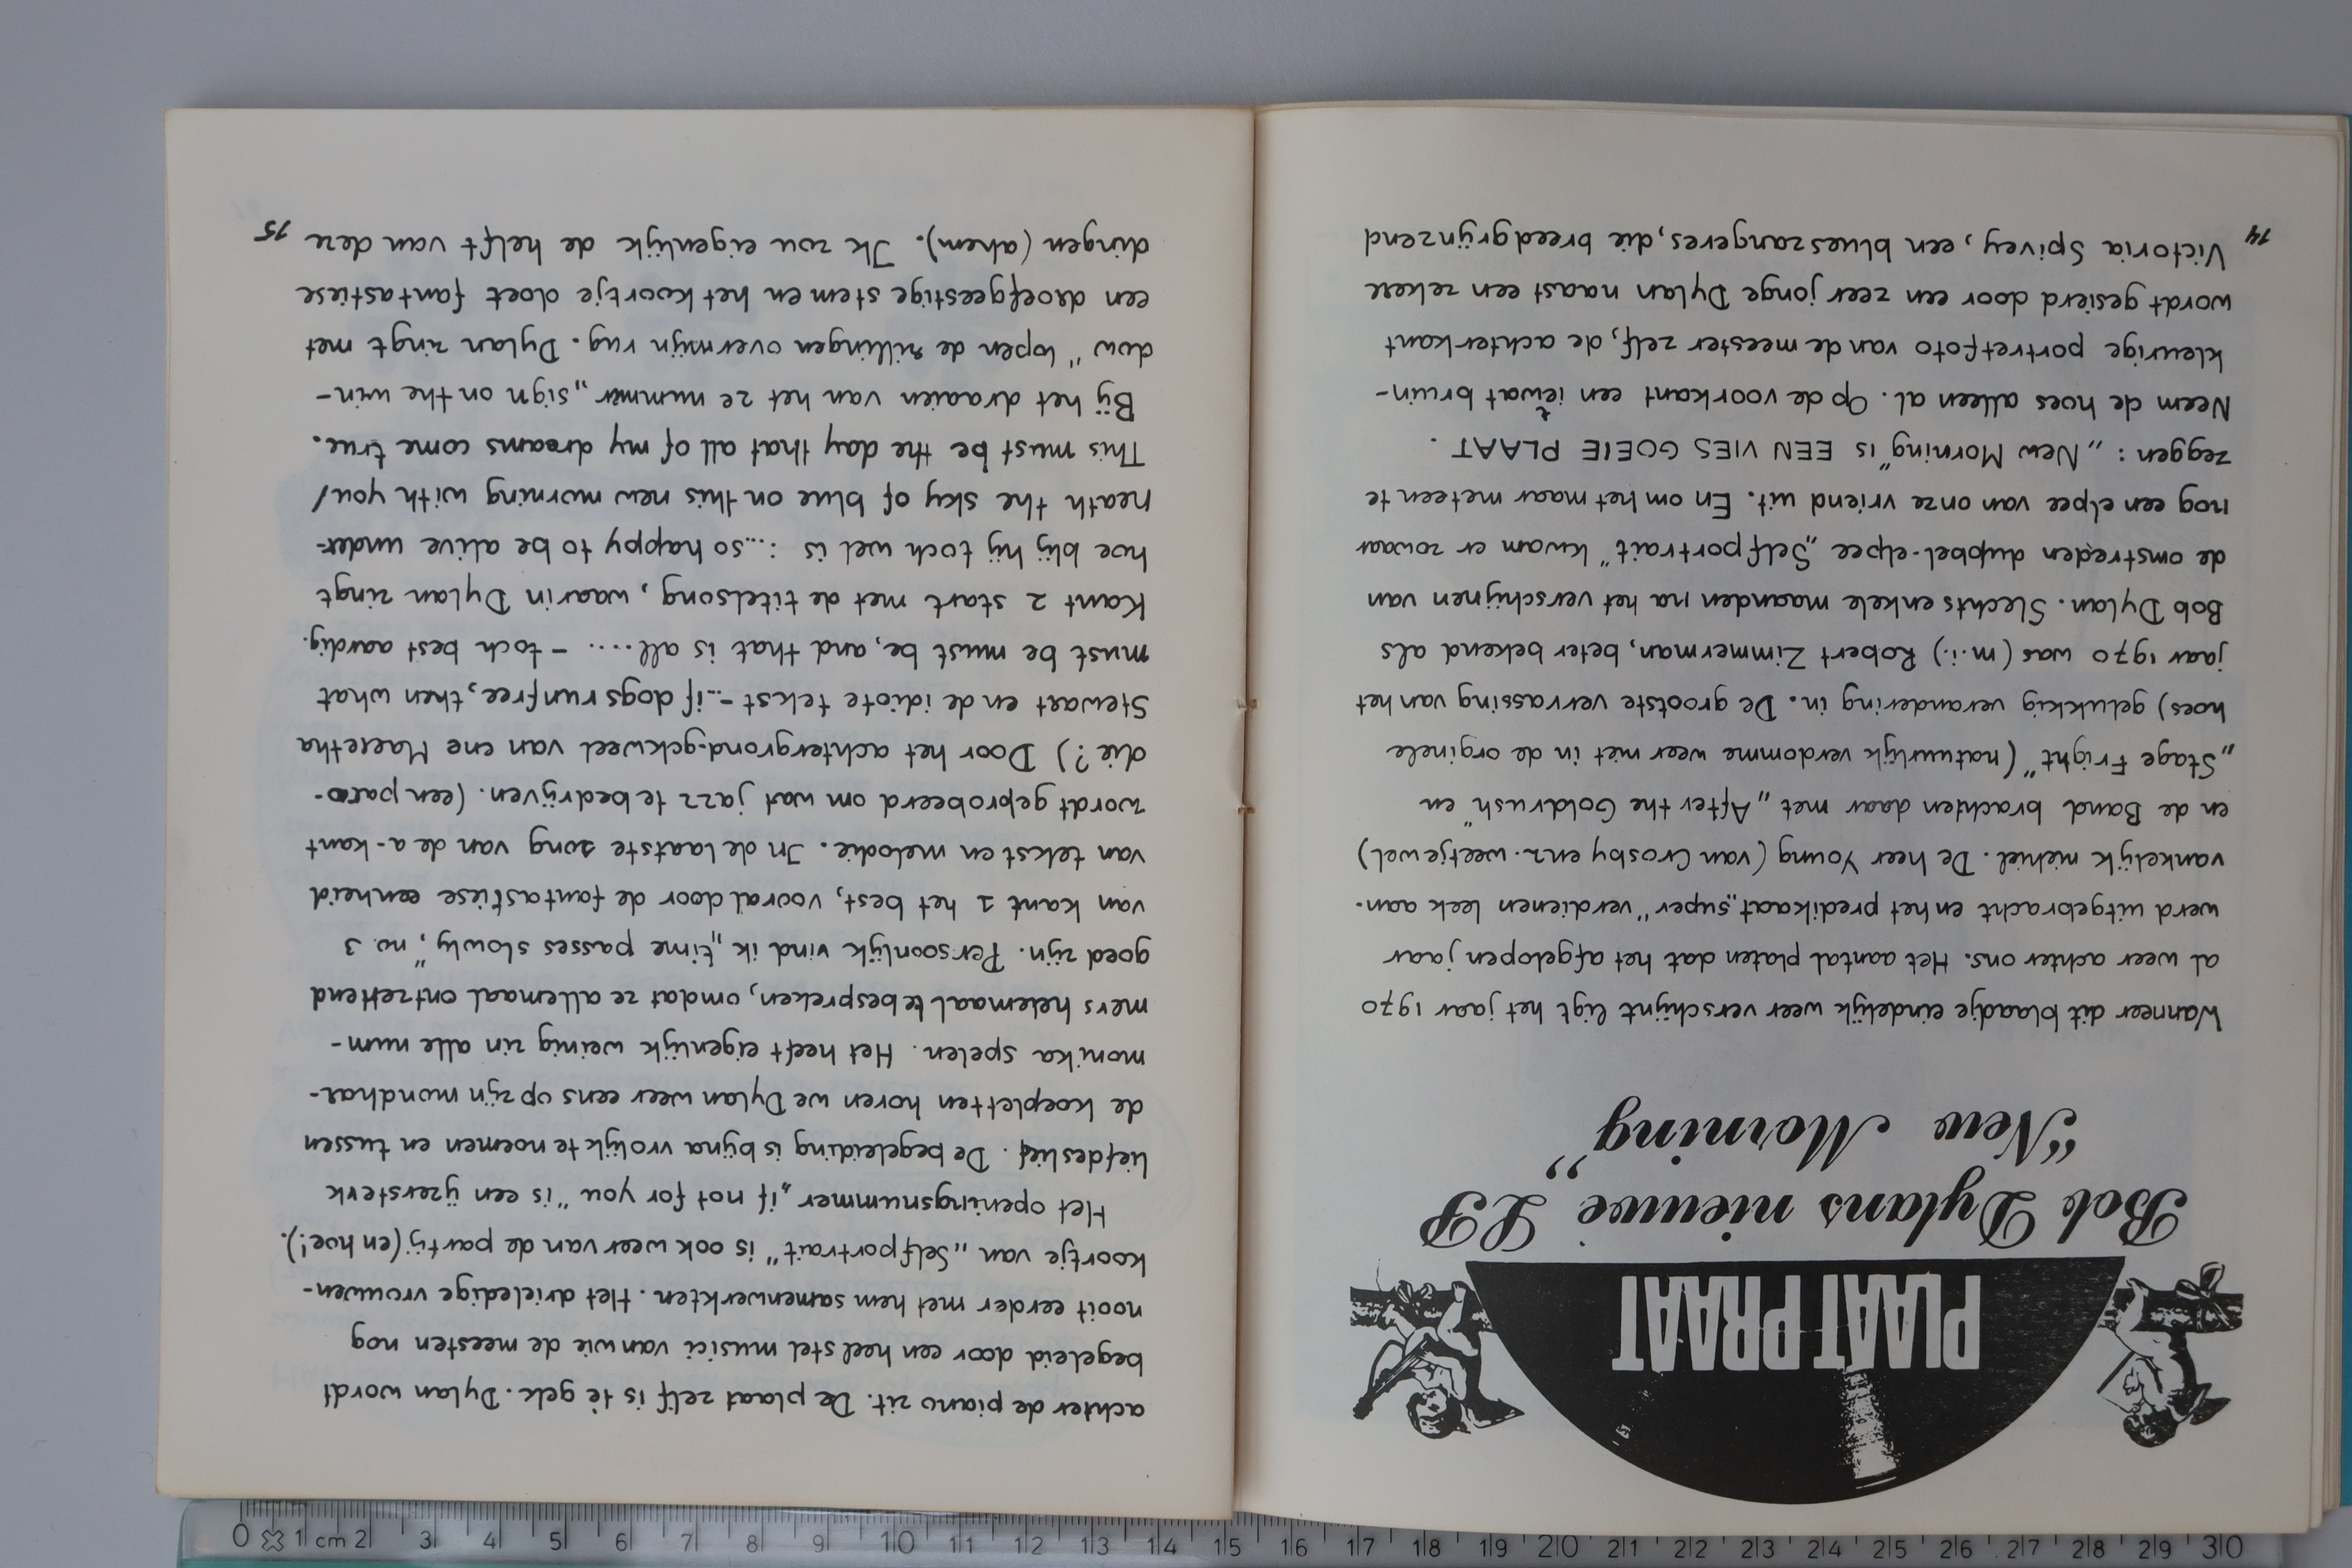 PLAAT PRAAT
Bob Dylans nieuwe LP
“New Morning”
Wanneer dit blaadje eindelijk weer verschijnt ligt het jaar 1970
al weer achter ons. Het aantal platen dat het afgelopen jaar
werd uitgebracht en het predikaat „super" verdienen leek aan-
vankelijk mehiel. De heer Young (van Crosby enz. weetjewel)
en de Band brachten daar met „After the Goldrush" en
„Stage Fright" (natuurlijk verdomme weer niet in de orginele
hoes) gelukkig verandering in. De grootste verrassing van het
jaar 1970 was (m.i.) Robert Zimmerman, beter bekend als
Bob Dylan. Slechts enkele maanden na het verschijnen van
de omstreden dubbel-elpee „Selfportrait" kwam er zowaar
nog een elpee van onze vriend uit. En om het maar meteen te
zeggen: „New Morning" is EEN VIES GOEIE PLAAT.
Neem de hoes alleen al. Op de voorkant een iewat bruin-
kleurige portretfoto van de meester zelf, de achterkant
wordt gesierd door een zeer jonge Dylan naast een zekere
Victoria Spivey, een blueszangeres, die breedgrijnzend
14
achter de piano zit. De plaat zelf is tè gek. Dylan wordt
begeleid door een heel stel musici van wie de meesten nog
nooit eerder met hem samenwerkten. Het drieledige vrouwen-
koortje van „Selfportrait" is ook weer van de partij (en hoe!).
Het openingsnummer „if not for you" is een ijzersterk
liefdeslied. De begeleiding is bijna vrolijk te noemen en tussen
de koepletten horen we Dylan weer eens op zijn mondhar-
monika spelen. Het heeft eigenlijk weinig zin alle num-
mers helemaal te bespreken, omdat ze allemaal ontzettend
goed zijn. Persoonlijk vind ik „time passes slowly", no. 3
van kant 1 het best, vooral door de fantastiese eenheid
van tekst en melodie. In de laatste song van de a-kant
wordt geprobeerd om wat jazz te bedrijven. (een paro-
die?) Door het achtergrond-gekweel van ene Maeretha
Stewart en de idiote tekst -...if dogs run free, then what
must be must be, and that is all.... - toch best aardig.
Kant 2 start met de titelsong, waarin Dylan zingt
hoe blij hij toch wel is :...so happy to be alive under-
neath the sky of blue on this new morning with you/
This must be the day that all of my dreams come true.
Bij het draaien van het 2e nummer „sign on the win-
dow" lopen de rillingen over mijn rug. Dylan zingt met
een droefgeestige stem en het koortje doet fantastiese
dingen (ahem). Ik zou eigenlijk de helft van deze
15
0 1 cm 2 3 4 5 6 7 8 9 10 11 12 13 14 15 16 17 18 19 20 21 22 23 24 25 26 27 28 29 30